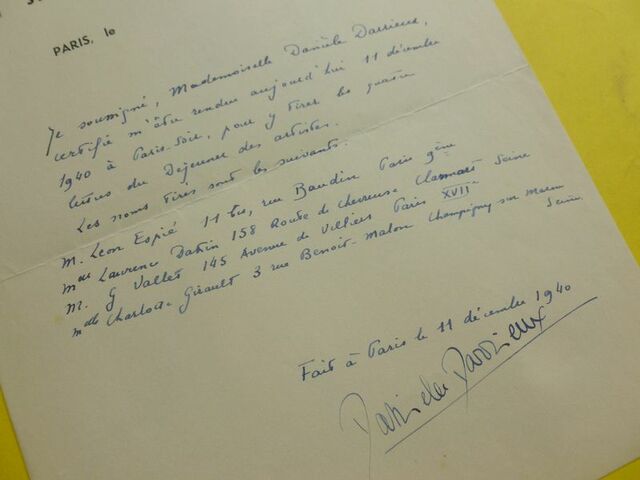 PARIS, le
Je soussigné, Mademoiselle Danièle Darrieux,
certifie m'être rendue aujourd'hui 11 décembre
1940 à Paris-Soir, pour y tirer les quatre
lettres du Déjeuner des artistes.
Les noms tirés sont les suivants:
M. Léon Espié 11 bis, rue Baudin Paris 9ème
Mme Laurence 158 Route de Chevreuse Clamart Seine
M. G Vallet 145 Avenue de Villiers Paris XVII
Mlle Charlotte Girault 3 rue Benoît-Malon Champigny sur Marne
Seine.
Fait à Paris le 11 décembre 1940
Danielle Darrieux